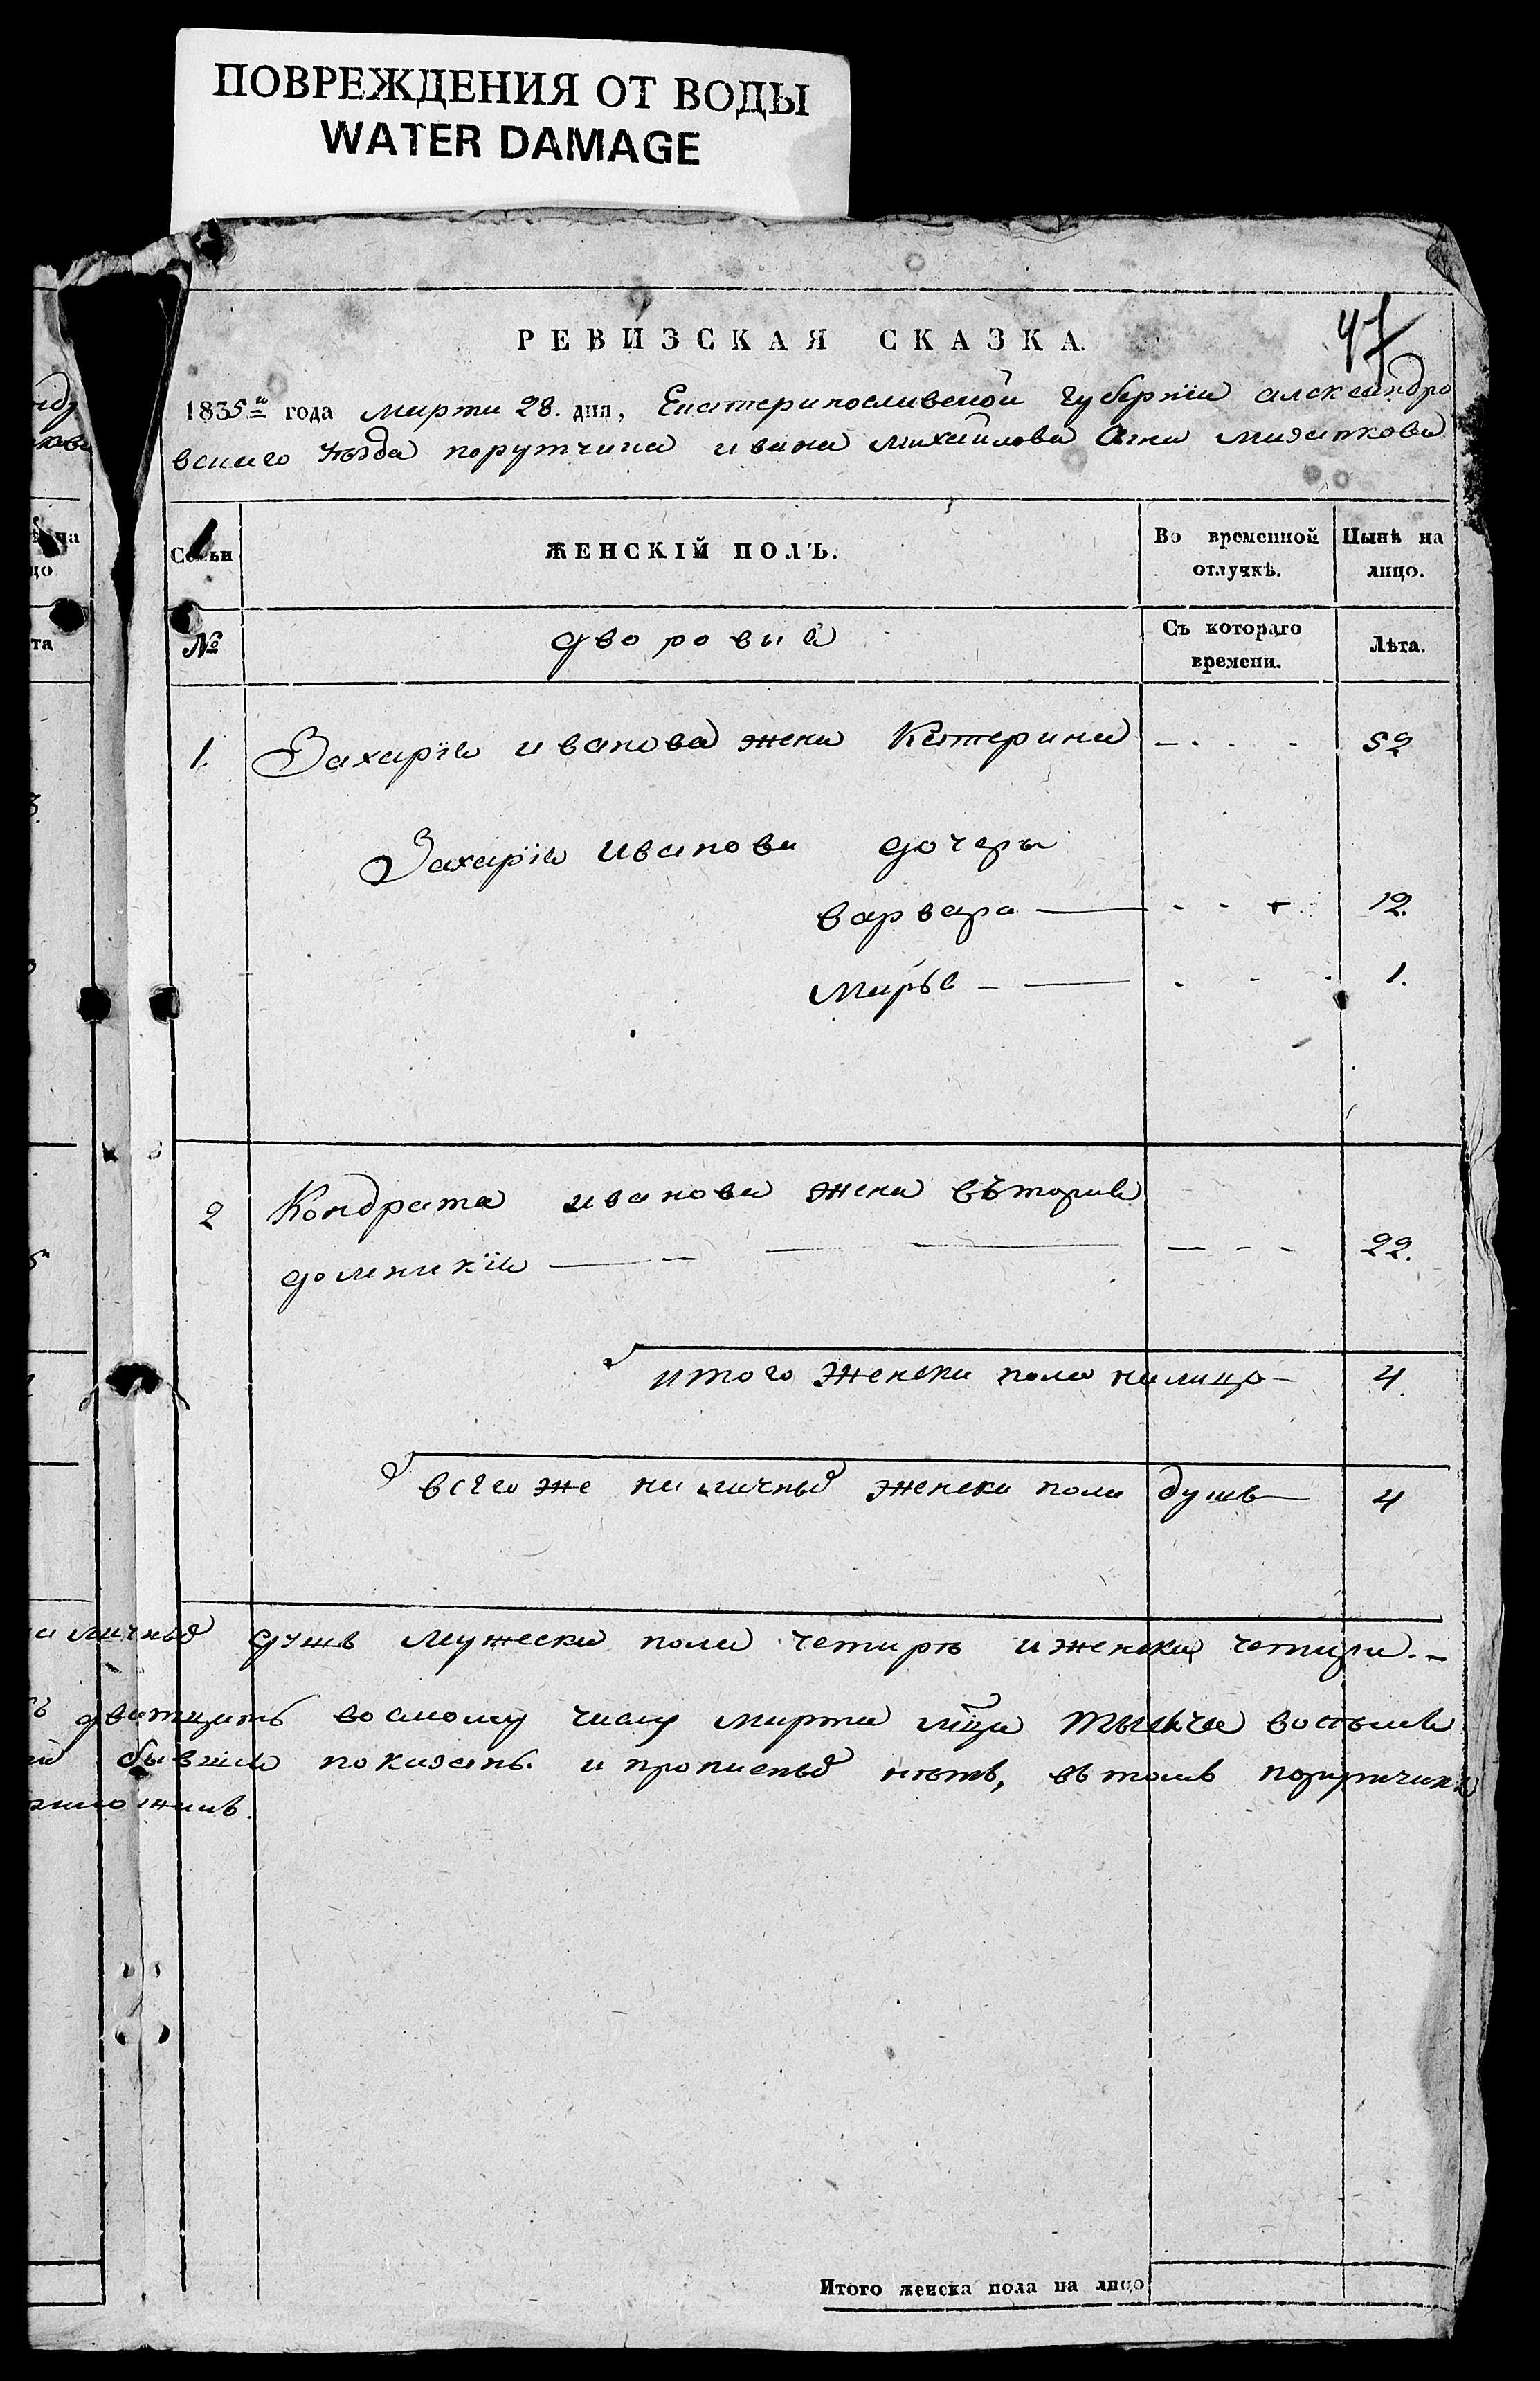 ПОВРЕЖДЕНИЯ ОТ ВОДЫ
WATER DAMAGE
47
РЕВИЗСКАЯ СКАЗКА.
1835го года марта 28. дня, Екатеринославской губерніи александро
вскаго уезда порутчика ивана михайлова сына мизапкова
Семьи
ЖЕНСКІЙ ПОЛЪ.
Во временной отлучкѣ.
Нынѣ на лицо.
№
дворовыя
Съ котораго времени.
Лѣта.
1. Захарія иванова жена Катерина - . . . 52
Захарія иванова дочеры
варвара — 12.
марья — 1.
2 Кондрата иванова жена вторая
доминикия — 22.
итого женска пола налицо — 4.
всего же наличныхъ женска пола душъ — 4
наличныхъ душъ мужеска пола четыре и женска четыри. -
дватцать восмому числу марта мца тысяча восемъ
бывшия показаны и прописныхъ нетъ, въ томъ порутчикъ
Итого женска пола на лицо